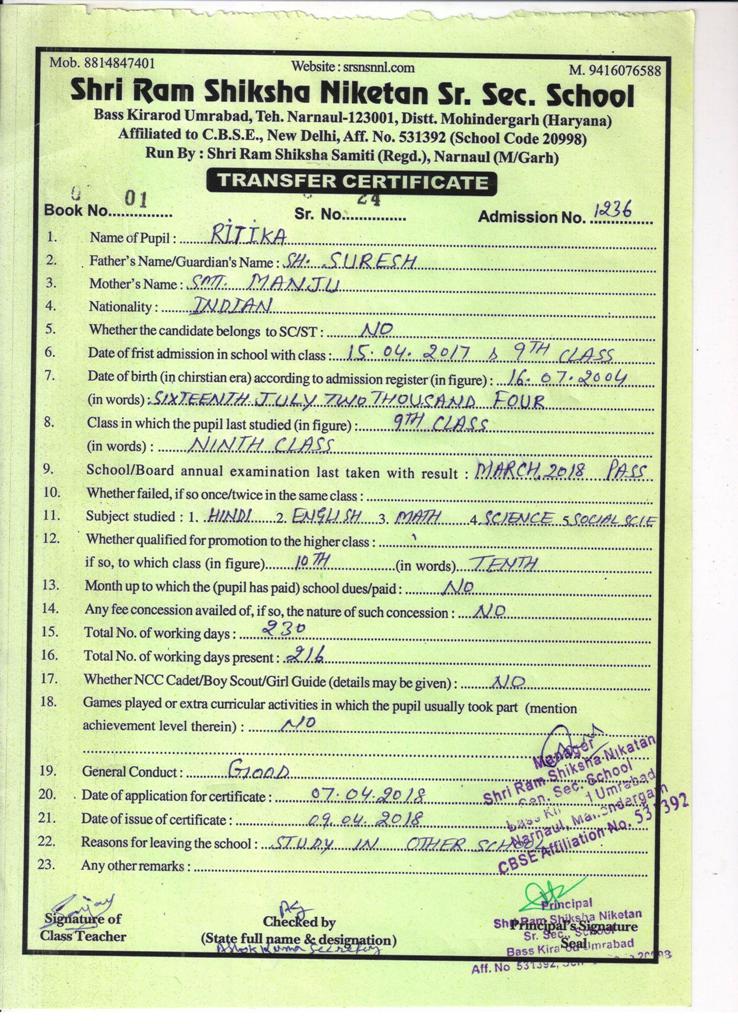 Mob. 8814847401 Website : srsnsnnl.com M. 9416076588
Shri Ram Shiksha Niketan Sr. Sec. School
Bass Kirarod Umrabad, Teh. Narnaul-123001, Distt. Mohindergarh (Haryana)
Affiliated to C.B.S.E., New Delhi, Aff. No. 531392 (School Code 20998)
Run By : Shri Ram Shiksha Samiti (Regd.), Narnaul (M/Garh)
TRANSFER CERTIFICATE
Book No. 01 Sr. No. 24 Admission No. 1236
1. Name of Pupil : RITIKA
2. Father's Name/Guardian's Name : SH. SURESH
3. Mother's Name : SMT. MANJU
4. Nationality : INDIAN
5. Whether the candidate belongs to SC/ST : NO
6. Date of frist admission in school with class : 15.04.2017 & 9TH CLASS
7. Date of birth (in chirstian era) according to admission register (in figure) : 16.07.2004
(in words) : SIXTEENTH JULY TWO THOUSAND FOUR
8. Class in which the pupil last studied (in figure) : 9TH CLASS
(in words) : NINTH CLASS
9. School/Board annual examination last taken with result : MARCH, 2018 PASS
10. Whether failed, if so once/twice in the same class :
11. Subject studied : 1. HINDI 2. ENGLISH 3. MATH 4. SCIENCE 5 SOCIAL SCIE
12. Whether qualified for promotion to the higher class :
if so, to which class (in figure) 10TH (in words) TENTH
13. Month up to which the (pupil has paid) school dues/paid : NO
14. Any fee concession availed of, if so, the nature of such concession : NO
15. Total No. of working days : 230
16. Total No. of working days present : 216
17. Whether NCC Cadet/Boy Scout/Girl Guide (details may be given) : NO
18. Games played or extra curricular activities in which the pupil usually took part (mention
achievement level therein) : NO
Manager
Shri Ram Shiksha Nikatan
Sen. Sec. School
Umrabad
Narnaul, Mahendergarh
CBSE Affiliation No. 531392
19. General Conduct : GOOD
20. Date of application for certificate : 07.04.2018
21. Date of issue of certificate : 09.04.2018
22. Reasons for leaving the school : STUDY IN OTHER SCHOOL
23. Any other remarks :
Signature of
Class Teacher
Checked by
(State full name & designation)
Principal's Signature
Seal
Principal
Shri Ram Shiksha Niketan
Sr. Sec. School
Bass Kirarod Umrabad
Aff. No 531392,